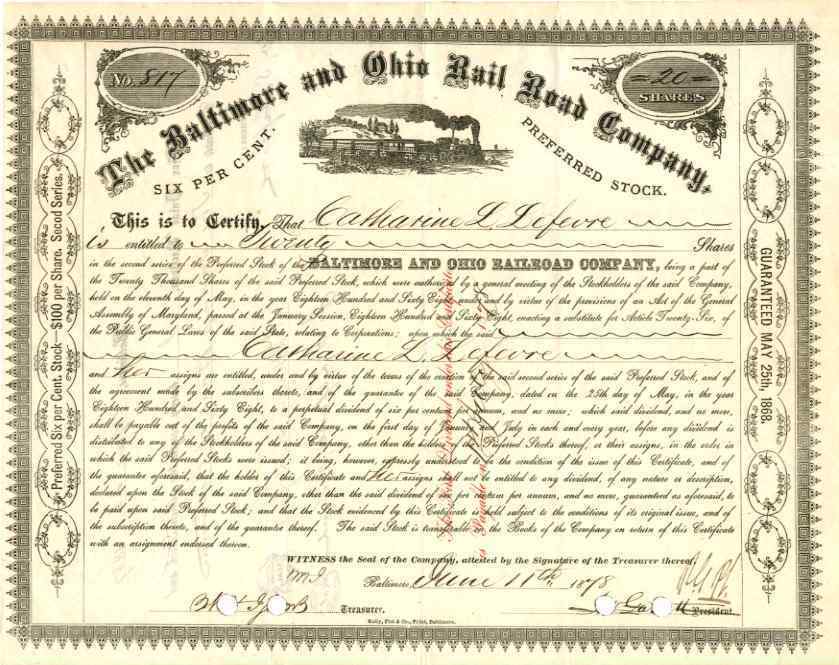 No. 817
The Baltimore and Ohio Rail Road Company.
20
SHARES
SIX PER CENT.
PREFERRED STOCK.
This is to Certify, That Catharine L. Lefevre
is entitled to Twenty Shares
in the second series of the Preferred Stock of the BALTIMORE AND OHIO RAILROAD COMPANY, being a part of
the Twenty Thousand Shares of the said Preferred Stock, which were authorized by a general meeting of the Stockholders of the said Company,
held on the eleventh day of May, in the year Eighteen Hundred and Sixty Eight, under and by virtue of the provisions of an Act of the General
Assembly of Maryland, passed at the January Session, Eighteen Hundred and Sixty Eight, enacting a substitute for Article Twenty-Six, of
the Public General Laws of the said State, relating to Corporations; upon which the said
Catharine L. Lefevre
and Her assigns are entitled, under and by virtue of the terms of the creation of the said second series of the said Preferred Stock, and of
the agreement made by the subscribers thereto, and of the guarantee of the said Company, dated on the 25th day of May, in the year
Eighteen Hundred and Sixty Eight, to a perpetual dividend of six per centum per annum, and no more; which said dividend, and no more,
shall be payable out of the profits of the said Company, on the first day of January and July in each and every year, before any dividend is
distributed to any of the Stockholders of the said Company, other than the holders of the Preferred Stocks thereof, or their assigns, in the order in
which the said Preferred Stocks were issued; it being, however, expressly understood to be the condition of the issue of this Certificate, and of
the guarantee aforesaid, that the holders of this Certificate and Her assigns shall not be entitled to any dividend, of any nature or description,
declared upon the Stock of the said Company, other than the said dividend of six per centum per annum, and no more, guaranteed as aforesaid, to
be paid upon said Preferred Stock; and that the Stock evidenced by this Certificate is held subject to the conditions of its original issue, and of
the subscription thereto, and of the guarantee thereof. The said Stock is transferable on the Books of the Company on return of this Certificate
with an assignment endorsed thereon.
WITNESS the Seal of the Company, attested by the Signature of the Treasurer thereof,
Baltimore, June 11th, 1878
Treasurer.
President.
Preferred Six per Cent. Stock - $100 per Share. Second Series.
GUARANTEED MAY 25th, 1868.